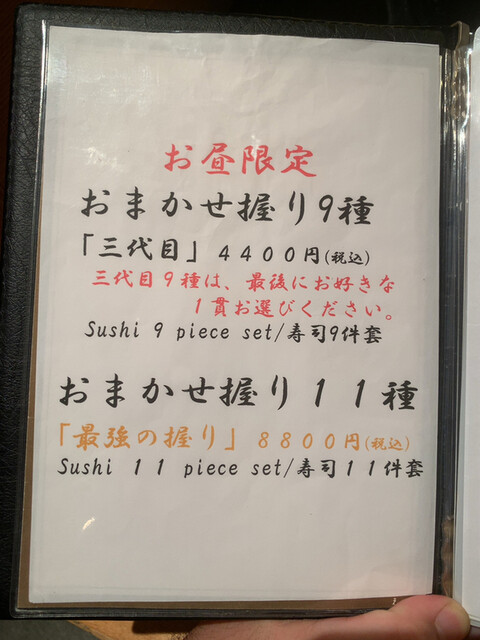 お昼限定
おまかせ握り9種
「三代目」4400円(税込)
三代目9種は、最後にお好きな
1貫お選びください。
Sushi 9 piece set/寿司9件套
おまかせ握り11種
「最強の握り」8800円(税込)
Sushi 11 piece set/寿司11件套